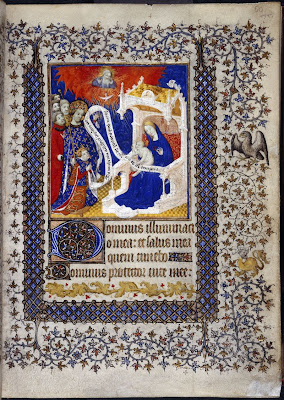 Dominus illuminaci
o mea: et salus mea
quem timebo
Dominus protector vite mee: